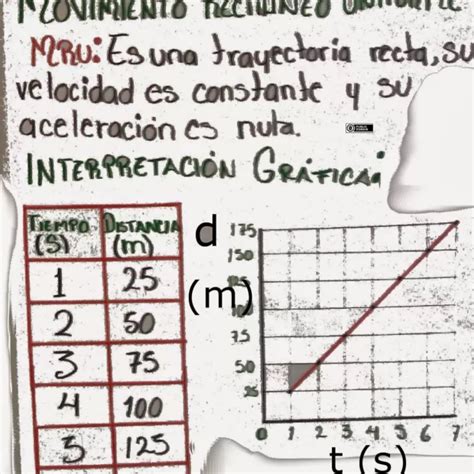 MOVIMIENTO RECTILINEO UNIFORME
MRU: Es una trayectoria recta, su
velocidad es constante y su
aceleración es nula.
INTERPRETACIÓN GRÁFICA:
TIEMPO (S) DISTANCIA (m)
1 25
2 50
3 75
4 100
5 125
d (m)
175
150
75
50
25
0 1 2 3 4 5 6 7
t (s)